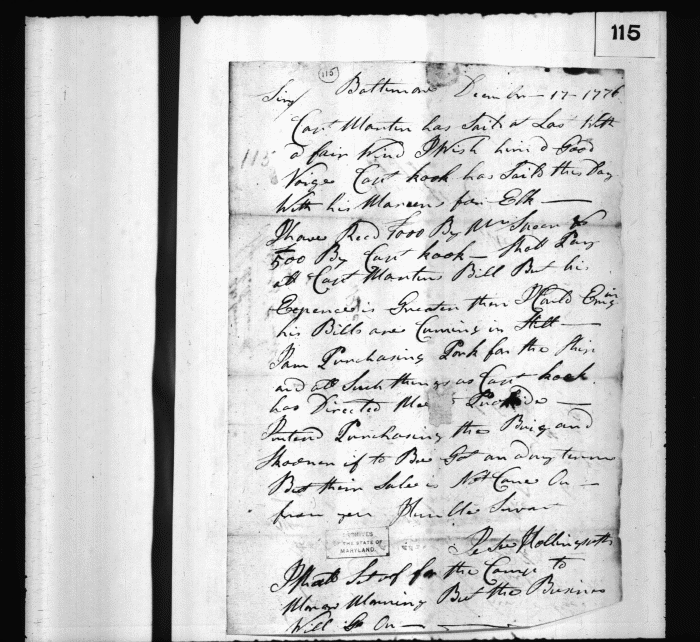 115
115
Sir, Baltimore December 17 1776
Capt Martin has Saild at Last With
a fair Wind I Wish him a Good
115
Voige Capt kook has Saild this Day
With his Mareens for Elk —
I have Recd £1000 By Mr
500 By Capt kook — Shall Pay
all Capt Martins Bill But his
Expence is Greater then I Could
his Bills are Cuming in Still —
I am Purchasing Pork for the Ship
and all Such things as Capt kook
has Directed Me —
Intend Purchasing the Brig and
Skooner if to Bee Got on any terms
But their Sale is Not Came On —
from your Humble Servant
Jesse Hollingsworth
ARCHIVES
OF THE STATE OF
MARYLAND
I Shall Set of for the Camp to
Morrow Morning But the Business
Will Go On —